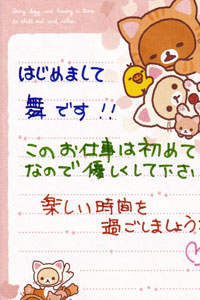 はじめまして
舞です!!
このお仕事は初めて
なので優しくして下さい
楽しい時間を
過ごしましょう